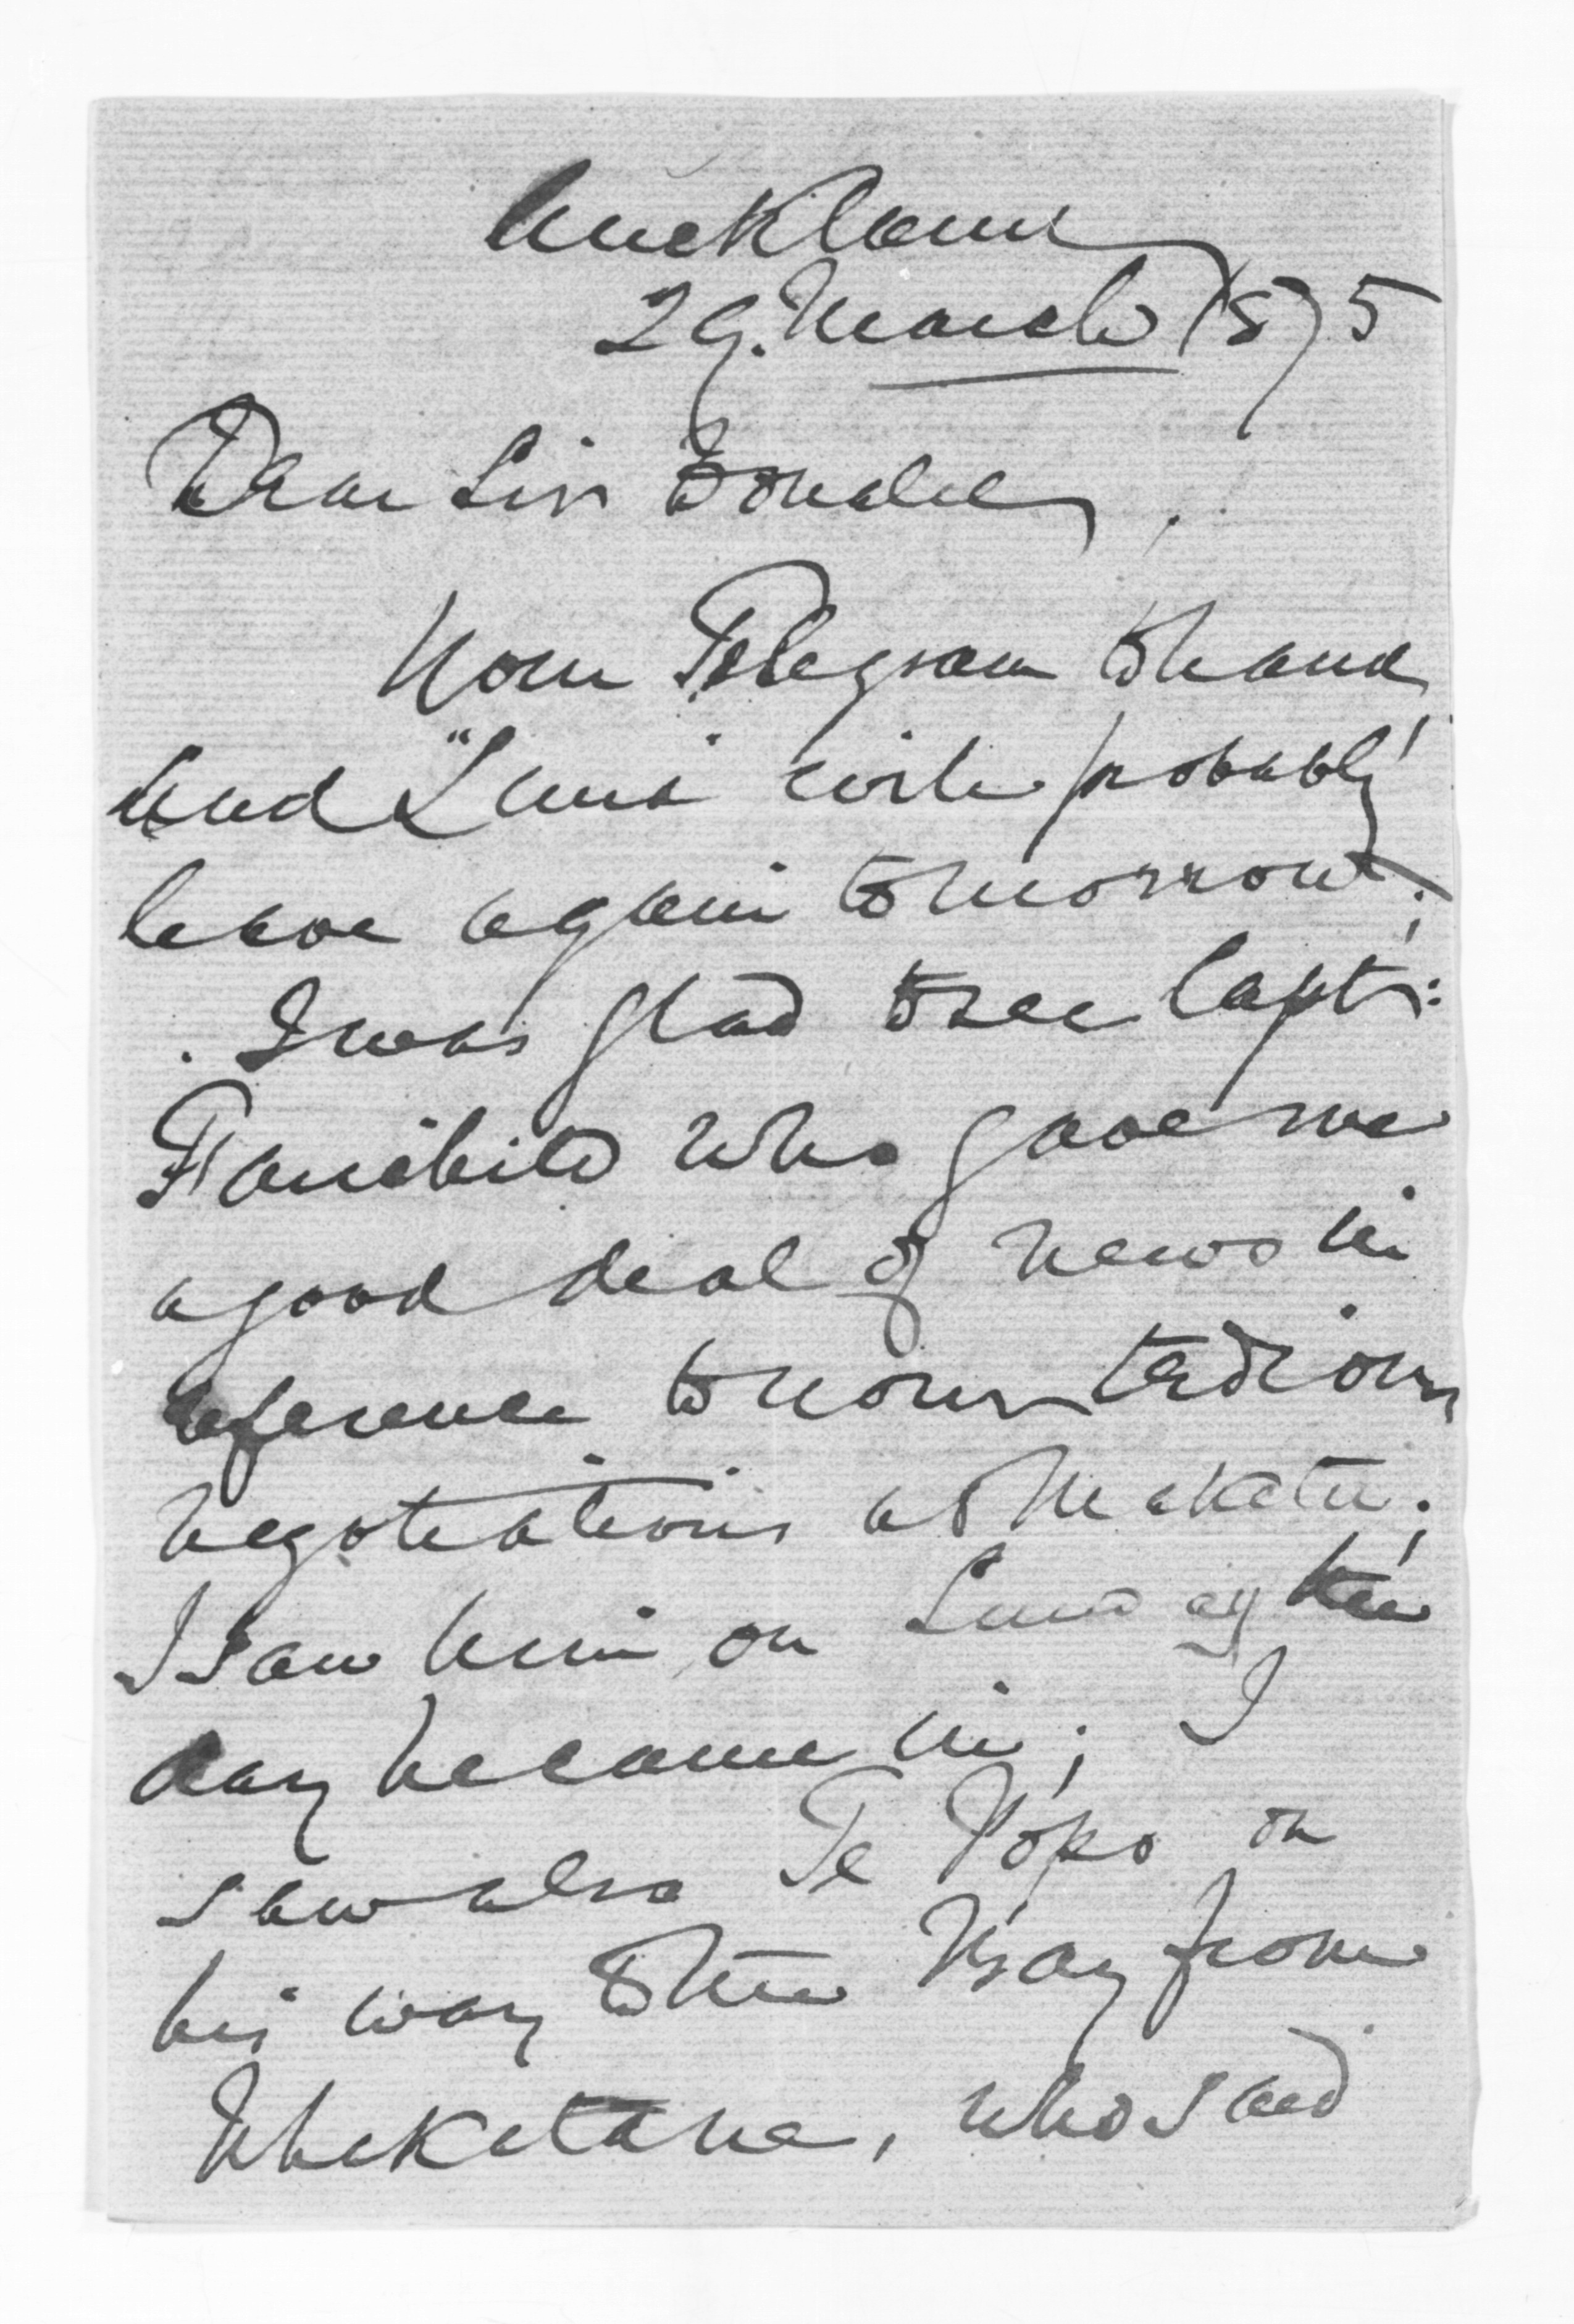 Auckland
29. March 1875
Dear Sir Donald,
Your Telegram to hand,
and "Luna" will probably
leave again tomorrow;
I was glad to see Capt:
Fairchild who gave me
a good deal of news in
reference to your tedious
negotiations at Maketu;
I saw him on Sunday the
day he came in; I
saw also Te Popo on
his way to the Bay from
Whakatane, who said